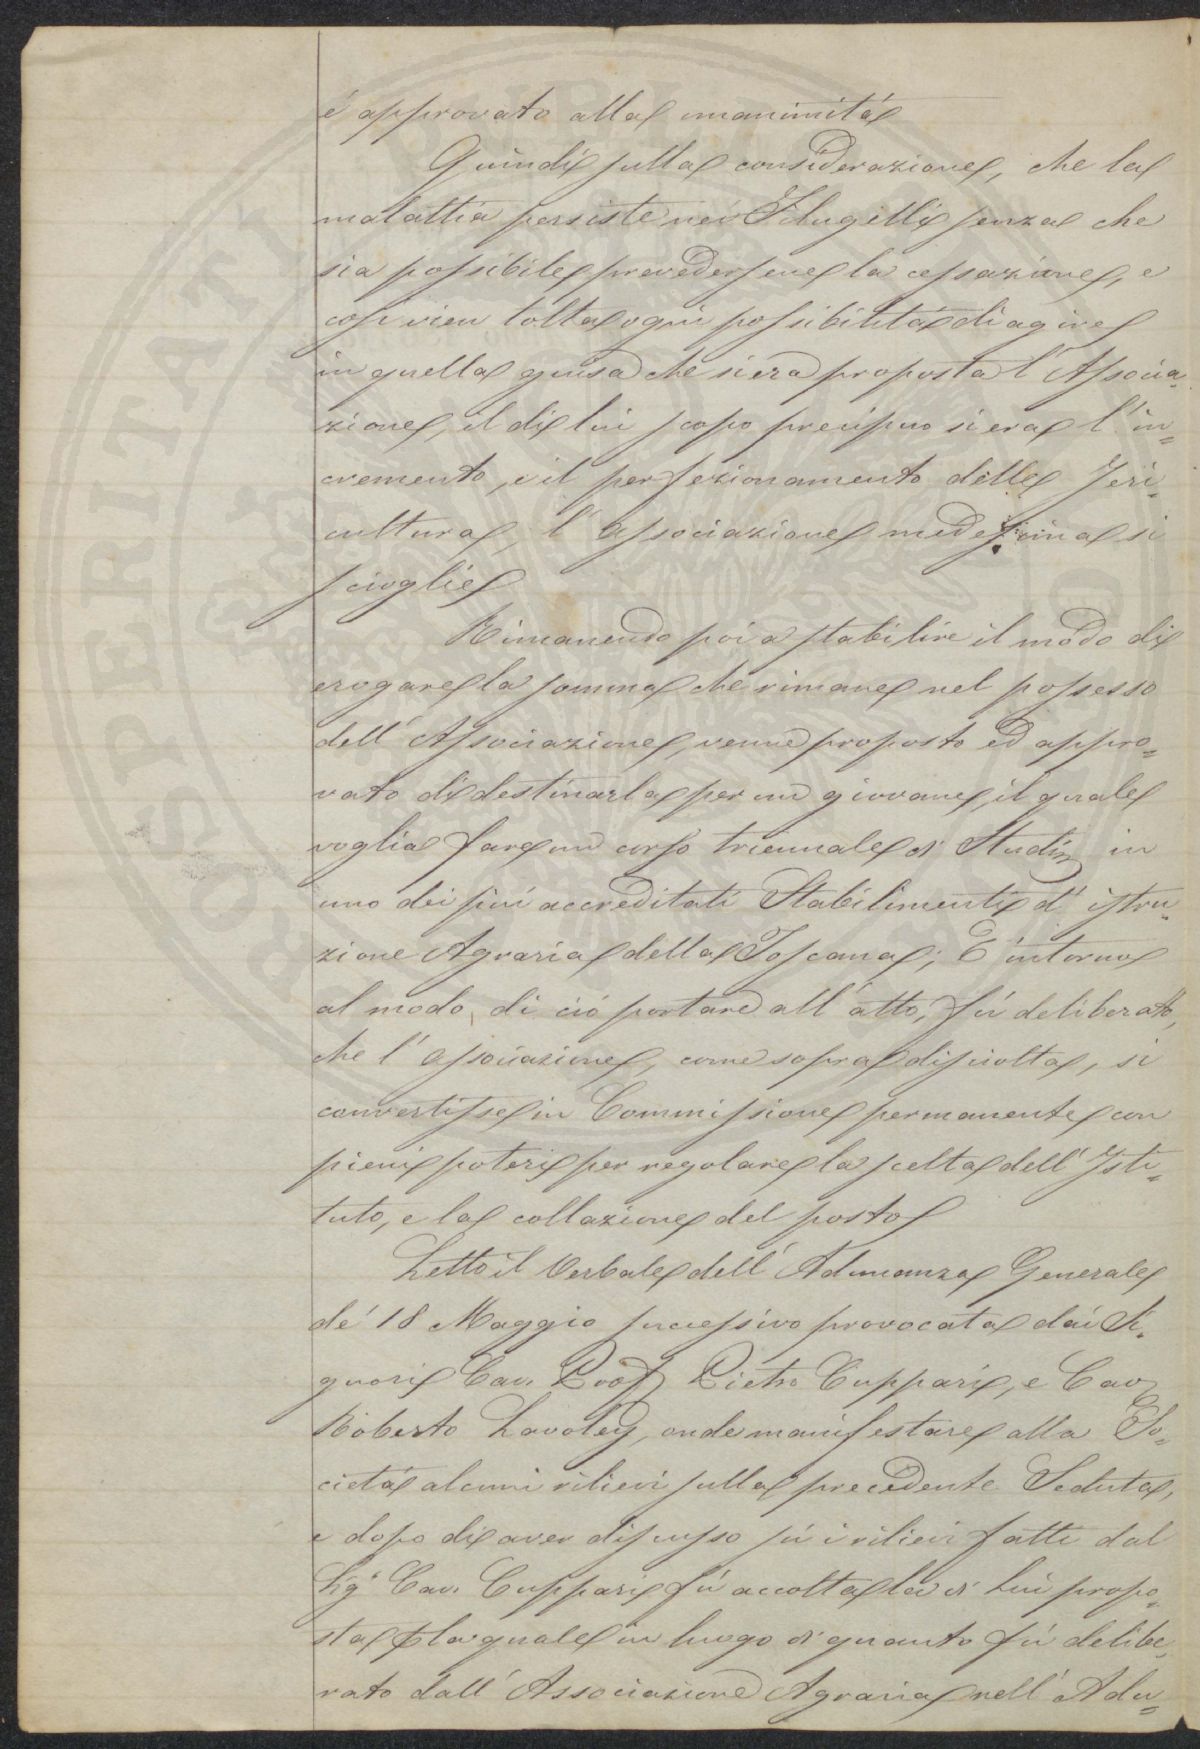 è approvato alla unanimità
Quindi sulla considerazione, che la
malattia persiste nei Filugelli senza che
sia possibile prevedersene la cessazione, e
così vien tolta ogni possibilità di agire
in quella guisa che si era proposta l'Associa-
zione, il di lui scopo precipuo si era l'in=
cremento, e il perfezionamento della Seri-
cultura, l'associazione medesima si
scioglie
Rimanendo poi a stabilire il modo di
erogare la somma che rimane nel possesso
dell'Associazione, venne proposto ed appro=
vato di destinarla per un giovane, il quale
voglia fare un corso triennale di Studi in
uno dei più accreditati Stabilimenti d'istru=
zione Agraria della Toscana; E intorno
al modo di ciò portare all'atto, fù deliberato,
che l'associazione, come sopra disciolta, si
convertisse in Commissione permanente con
pieni poteri per regolare la scelta dell'Isti=
tuto, e la collazione del posto
Letto il Verbale dell'Adunanza Generale
de' 18 Maggio successivo provocata dai Si-
gnori Cav. Prof. Pietro Cuppari, e Cav.
Roberto Lawley, onde manifestare alla So=
cietà alcuni rilievi sulla precedente Seduta,
e dopo di aver discusso sù i rilievi fatti dal
Sig.r Cav. Cuppari fù accolta la di Lui propo=
sta la quale in luogo di quanto fù delibe=
rato dall'Associazione Agraria nell'Adu=
PROSPERITATI PUBLI